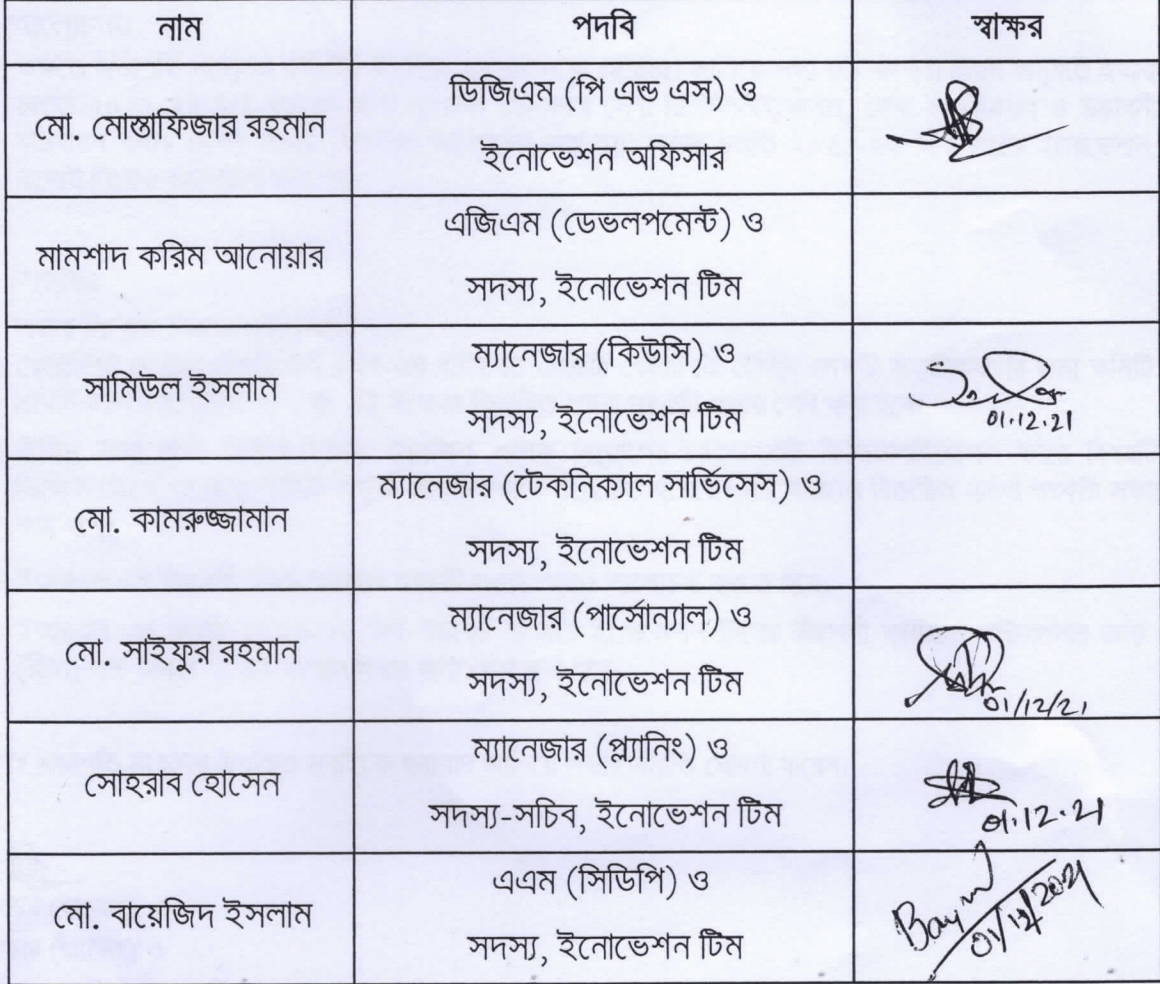 নাম পদবি স্বাক্ষর
মো. মোস্তাফিজার রহমান
ডিজিএম (পি এন্ড এস) ও
ইনোভেশন অফিসার
মামশাদ করিম আনোয়ার
এজিএম (ডেভলপমেন্ট) ও
সদস্য, ইনোভেশন টিম
সামিউল ইসলাম
ম্যানেজার (কিউসি) ও
সদস্য, ইনোভেশন টিম
01.12.21
মো. কামরুজ্জামান
ম্যানেজার (টেকনিক্যাল সার্ভিসেস) ও
সদস্য, ইনোভেশন টিম
মো. সাইফুর রহমান
ম্যানেজার (পার্সোন্যাল) ও
সদস্য, ইনোভেশন টিম
01/12/21
সোহরাব হোসেন
ম্যানেজার (প্ল্যানিং) ও
সদস্য-সচিব, ইনোভেশন টিম
01.12.21
মো. বায়েজিদ ইসলাম
এএম (সিডিপি) ও
সদস্য, ইনোভেশন টিম
01/12/2021